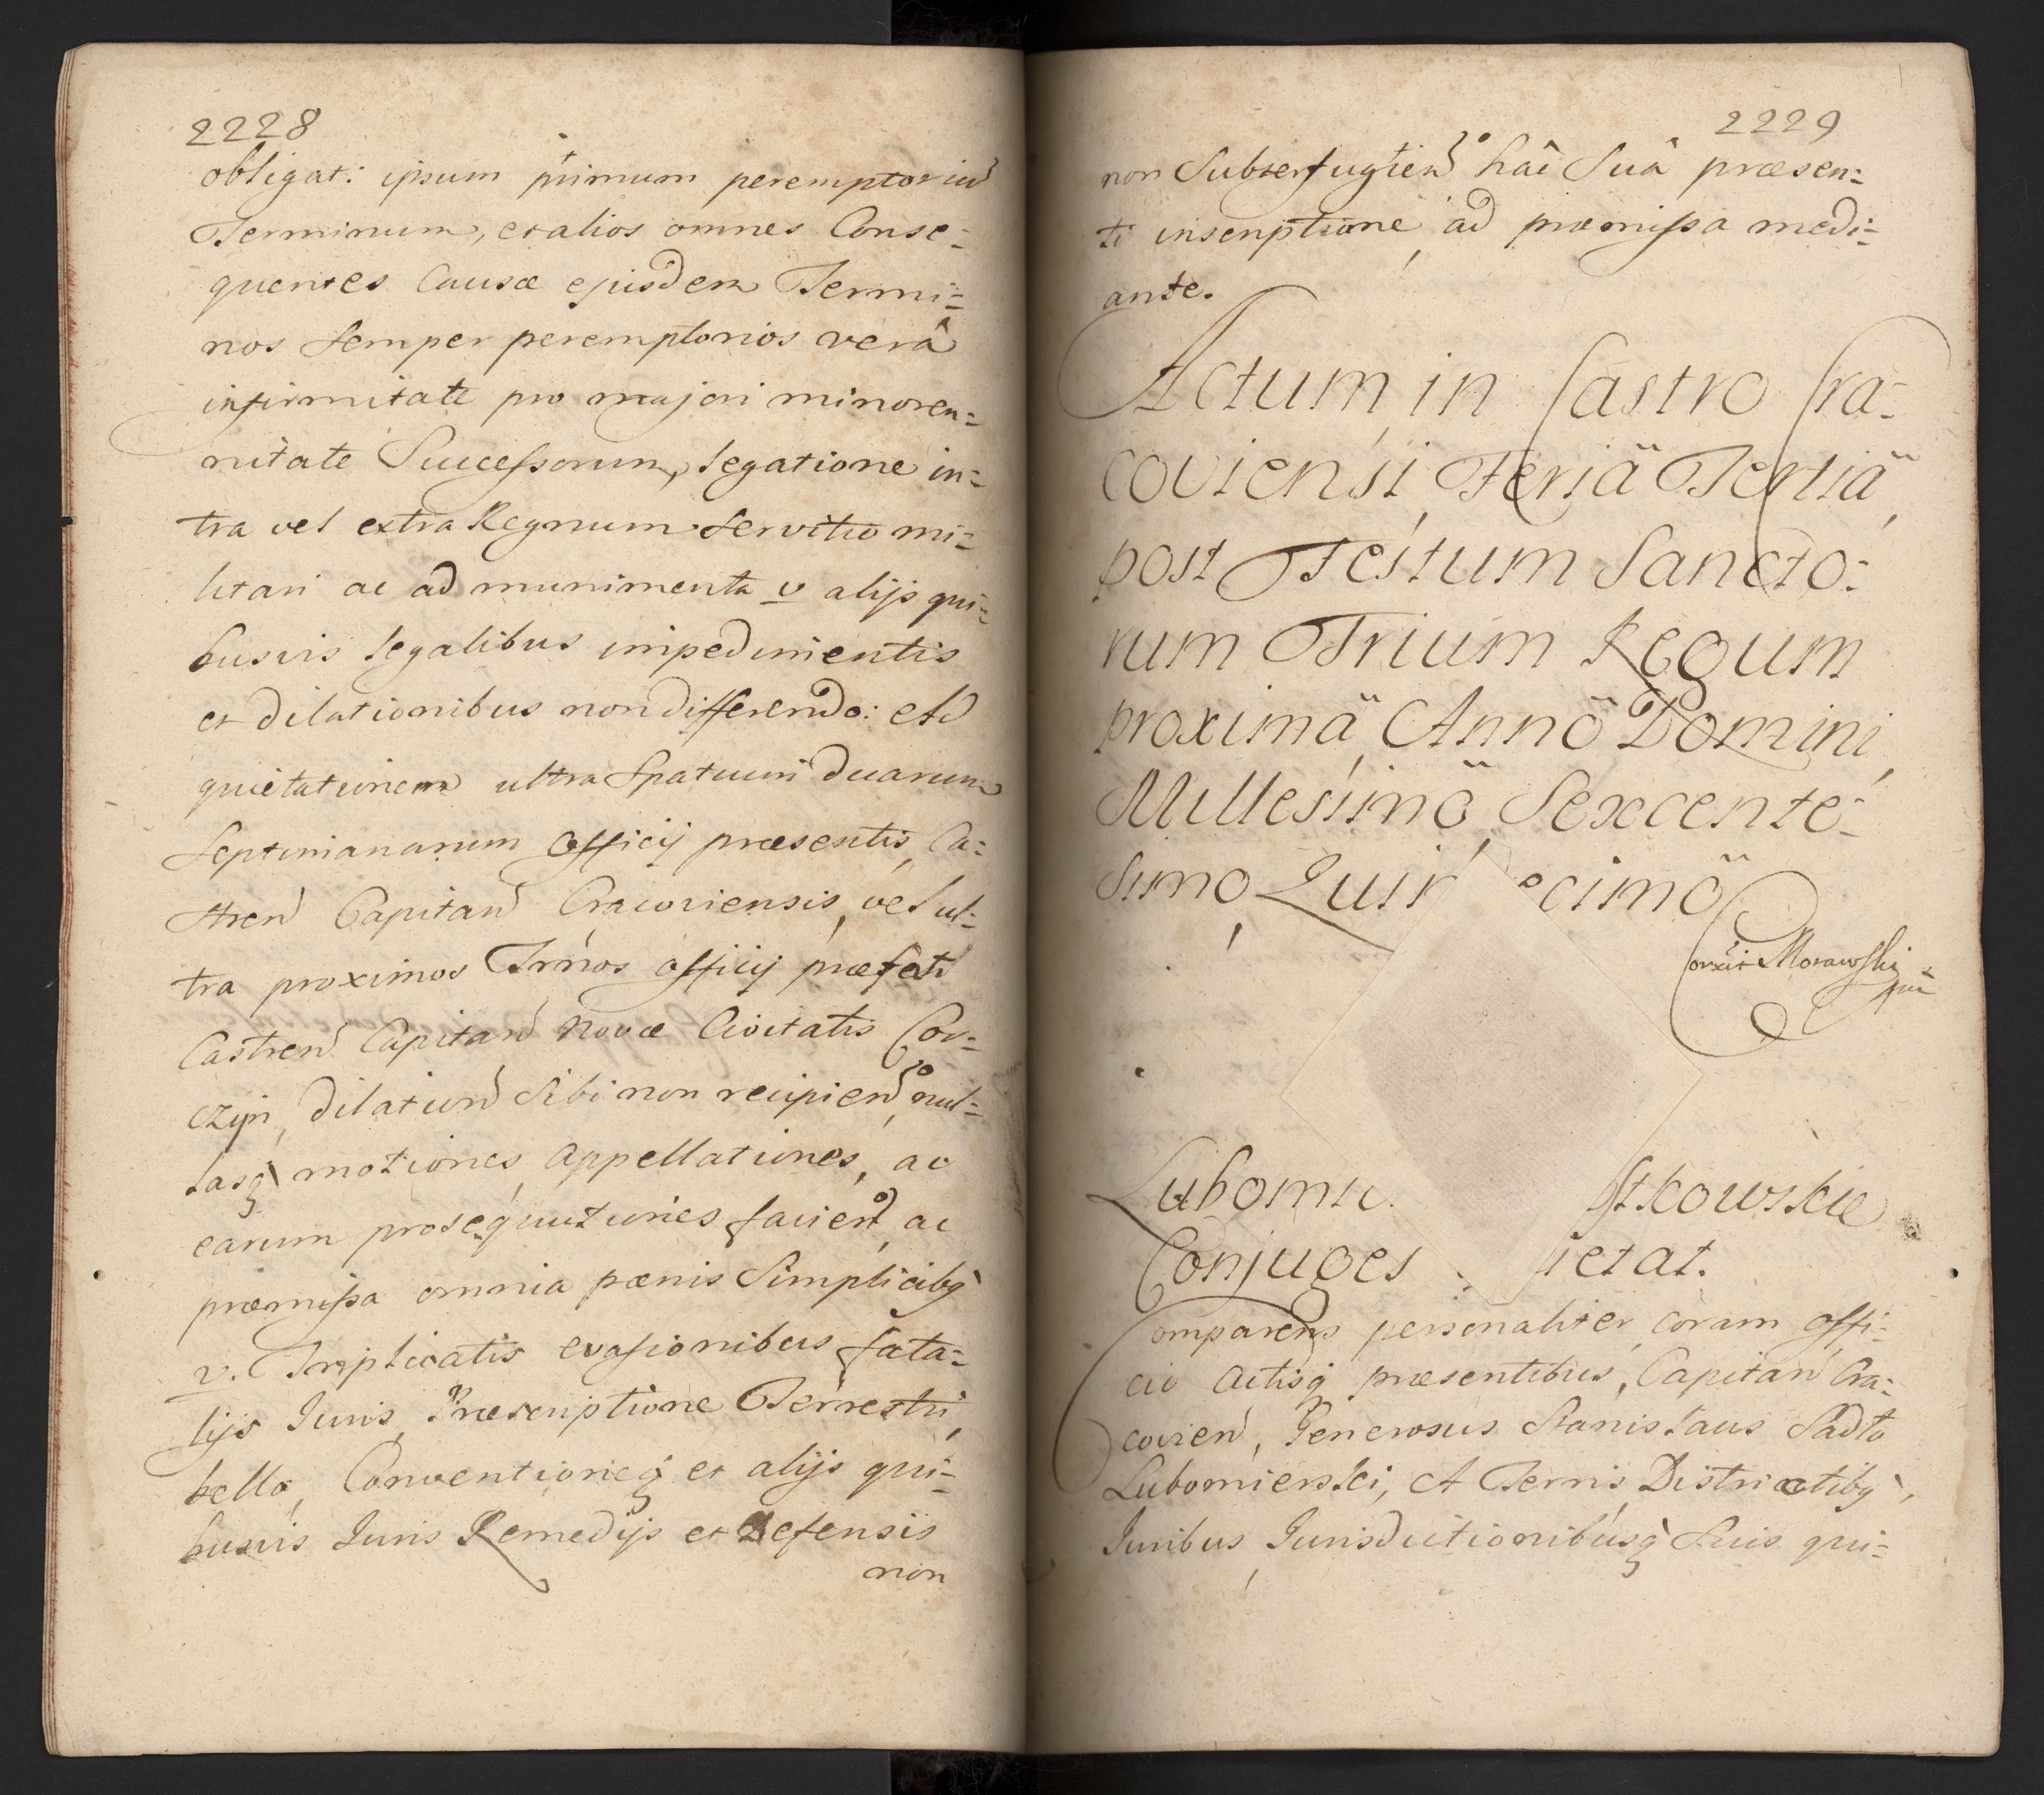 2228
obligat: ipsum primum peremptoriu
Terminum, et alios omnes Conse=
quentes Causæ ejusdem Termi=
nos semper peremptorios verâ
infirmitate pro majori minoren=
nitate Successorum, legatione in=
tra vel extra Regnum servitio mi=
litari ac ad munimenta v alijs qui=
busvis legalibus impedimentis
et dilationibus non differendo: et
quietationem ultra Spatium duarum
Septimanarum Officij præsentis, Ca=
stren Capitan Cracoviensis, vel ul=
tra proximos Trm̃os officij præfati
Castren Capitan Novæ Civitatis Cor=
czyn, dilation Sibi non recipiendo, nul=
lasq motiones, Appellationes, ac
earum prosequutiones faciendo, ac
præmissa omnia pœnis Simplicibq
v. Triplicatis evasionibus fata=
lijs Juris, Præscriptione Terrestri,
bello, Conventioneq et alijs qui=
busvis Juris Remedijs et Defensis
non
2229
non Subterfugiendo hac Suâ præsen=
ti inscriptione, ad præmissa medi=
ante.
Actum in Castro Cra=
coviensi, Feriâ Tertiâ,
post Festum Sancto=
rum Trium Regum
proximâ, Annô Domini,
Millesimô, Sexcente=
simo, Quin ecimô
Correxit Morawski
mp
Lubomie stkowskie
Conjuges ietat.
Comparens personaliter coram offi=
cio Actisq præsentibus, Capitan Cra=
covien, Generosus Stanislaus Sadło
Lubomierski, A Terris Districtibq,
Juribus, Jurisdictionibusq Suis qui=